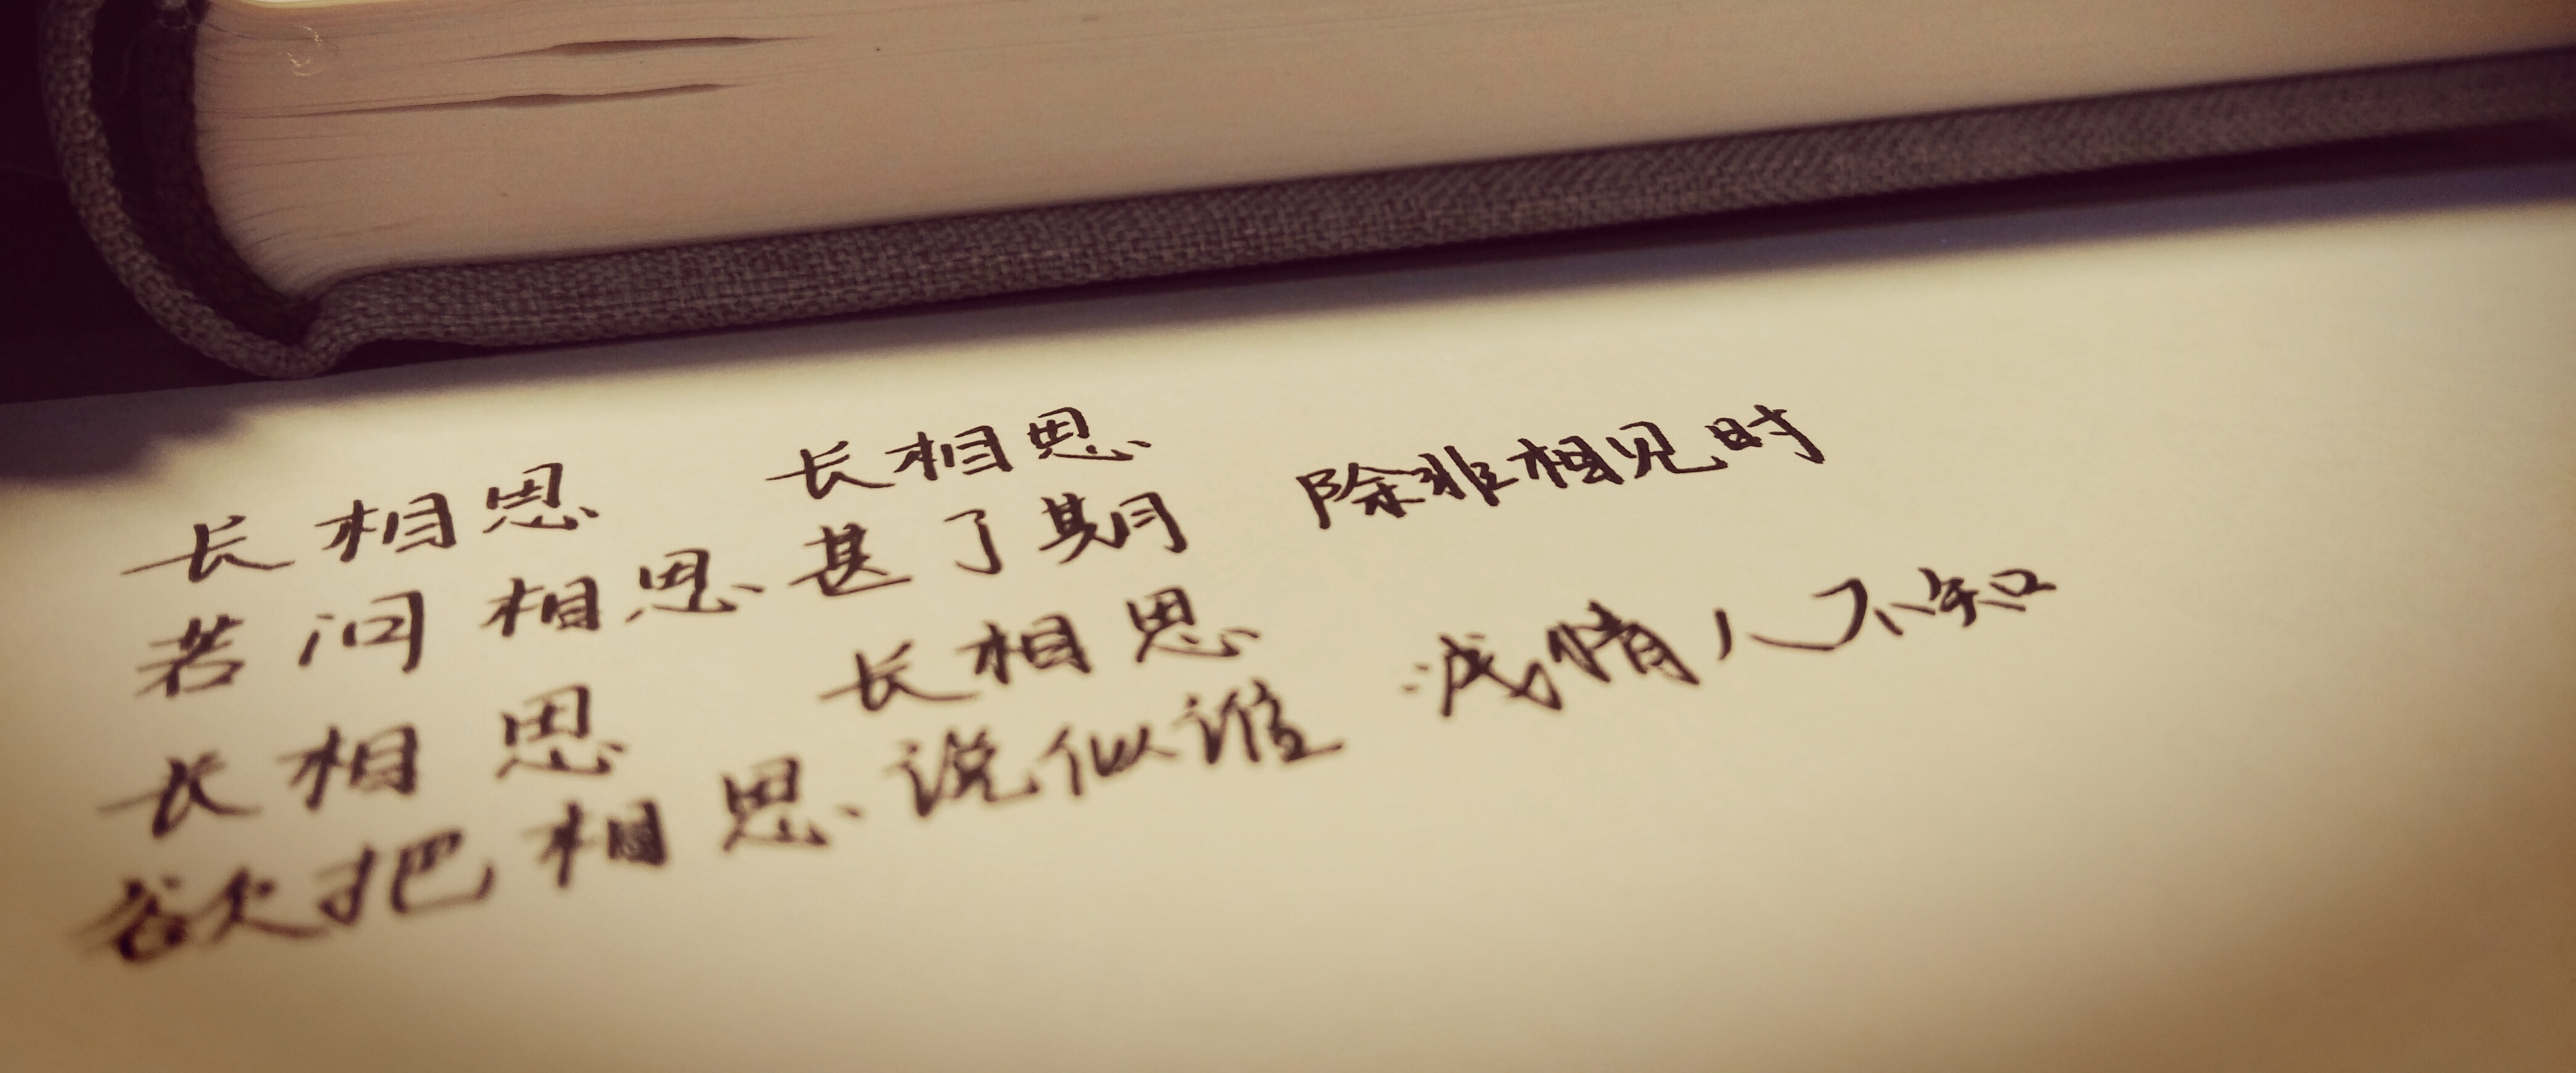 长相思 长相思
若问相思甚了期 除非相见时
长相思 长相思
欲把相思说似谁 浅情人不知